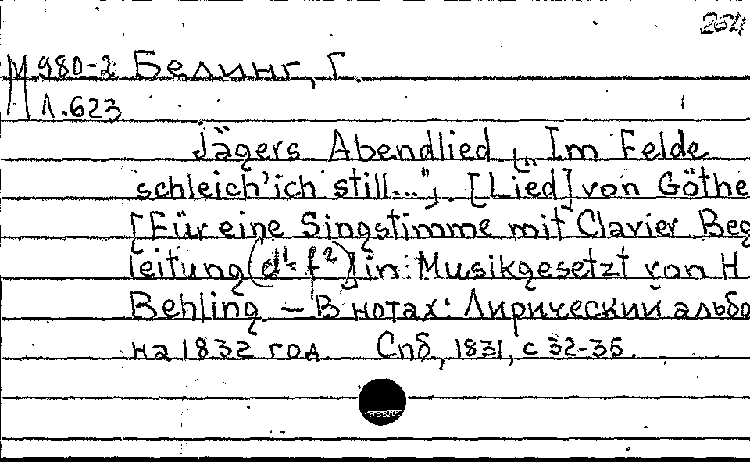 254
М 980-2 Белинг, Г.
Л.623
Jägers Abendlied („Im Felde
schleich' ich still..."). [Lied] von Göthe
[Für eine Singstimme mit Clavier Beg
leitung (d¹-f²)] in: Musik gesetzt von H.
Behling. — В нотах: Лирический альбо
на 1832 год. Спб, 1831, с 32-35.